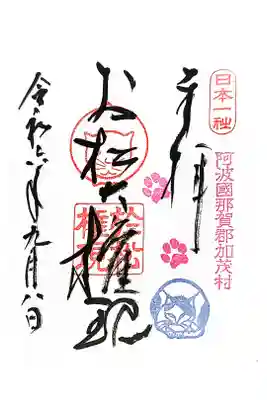 日本一社
阿波國那賀郡加茂村
奉拝
お松大權現
令和六年九月八日